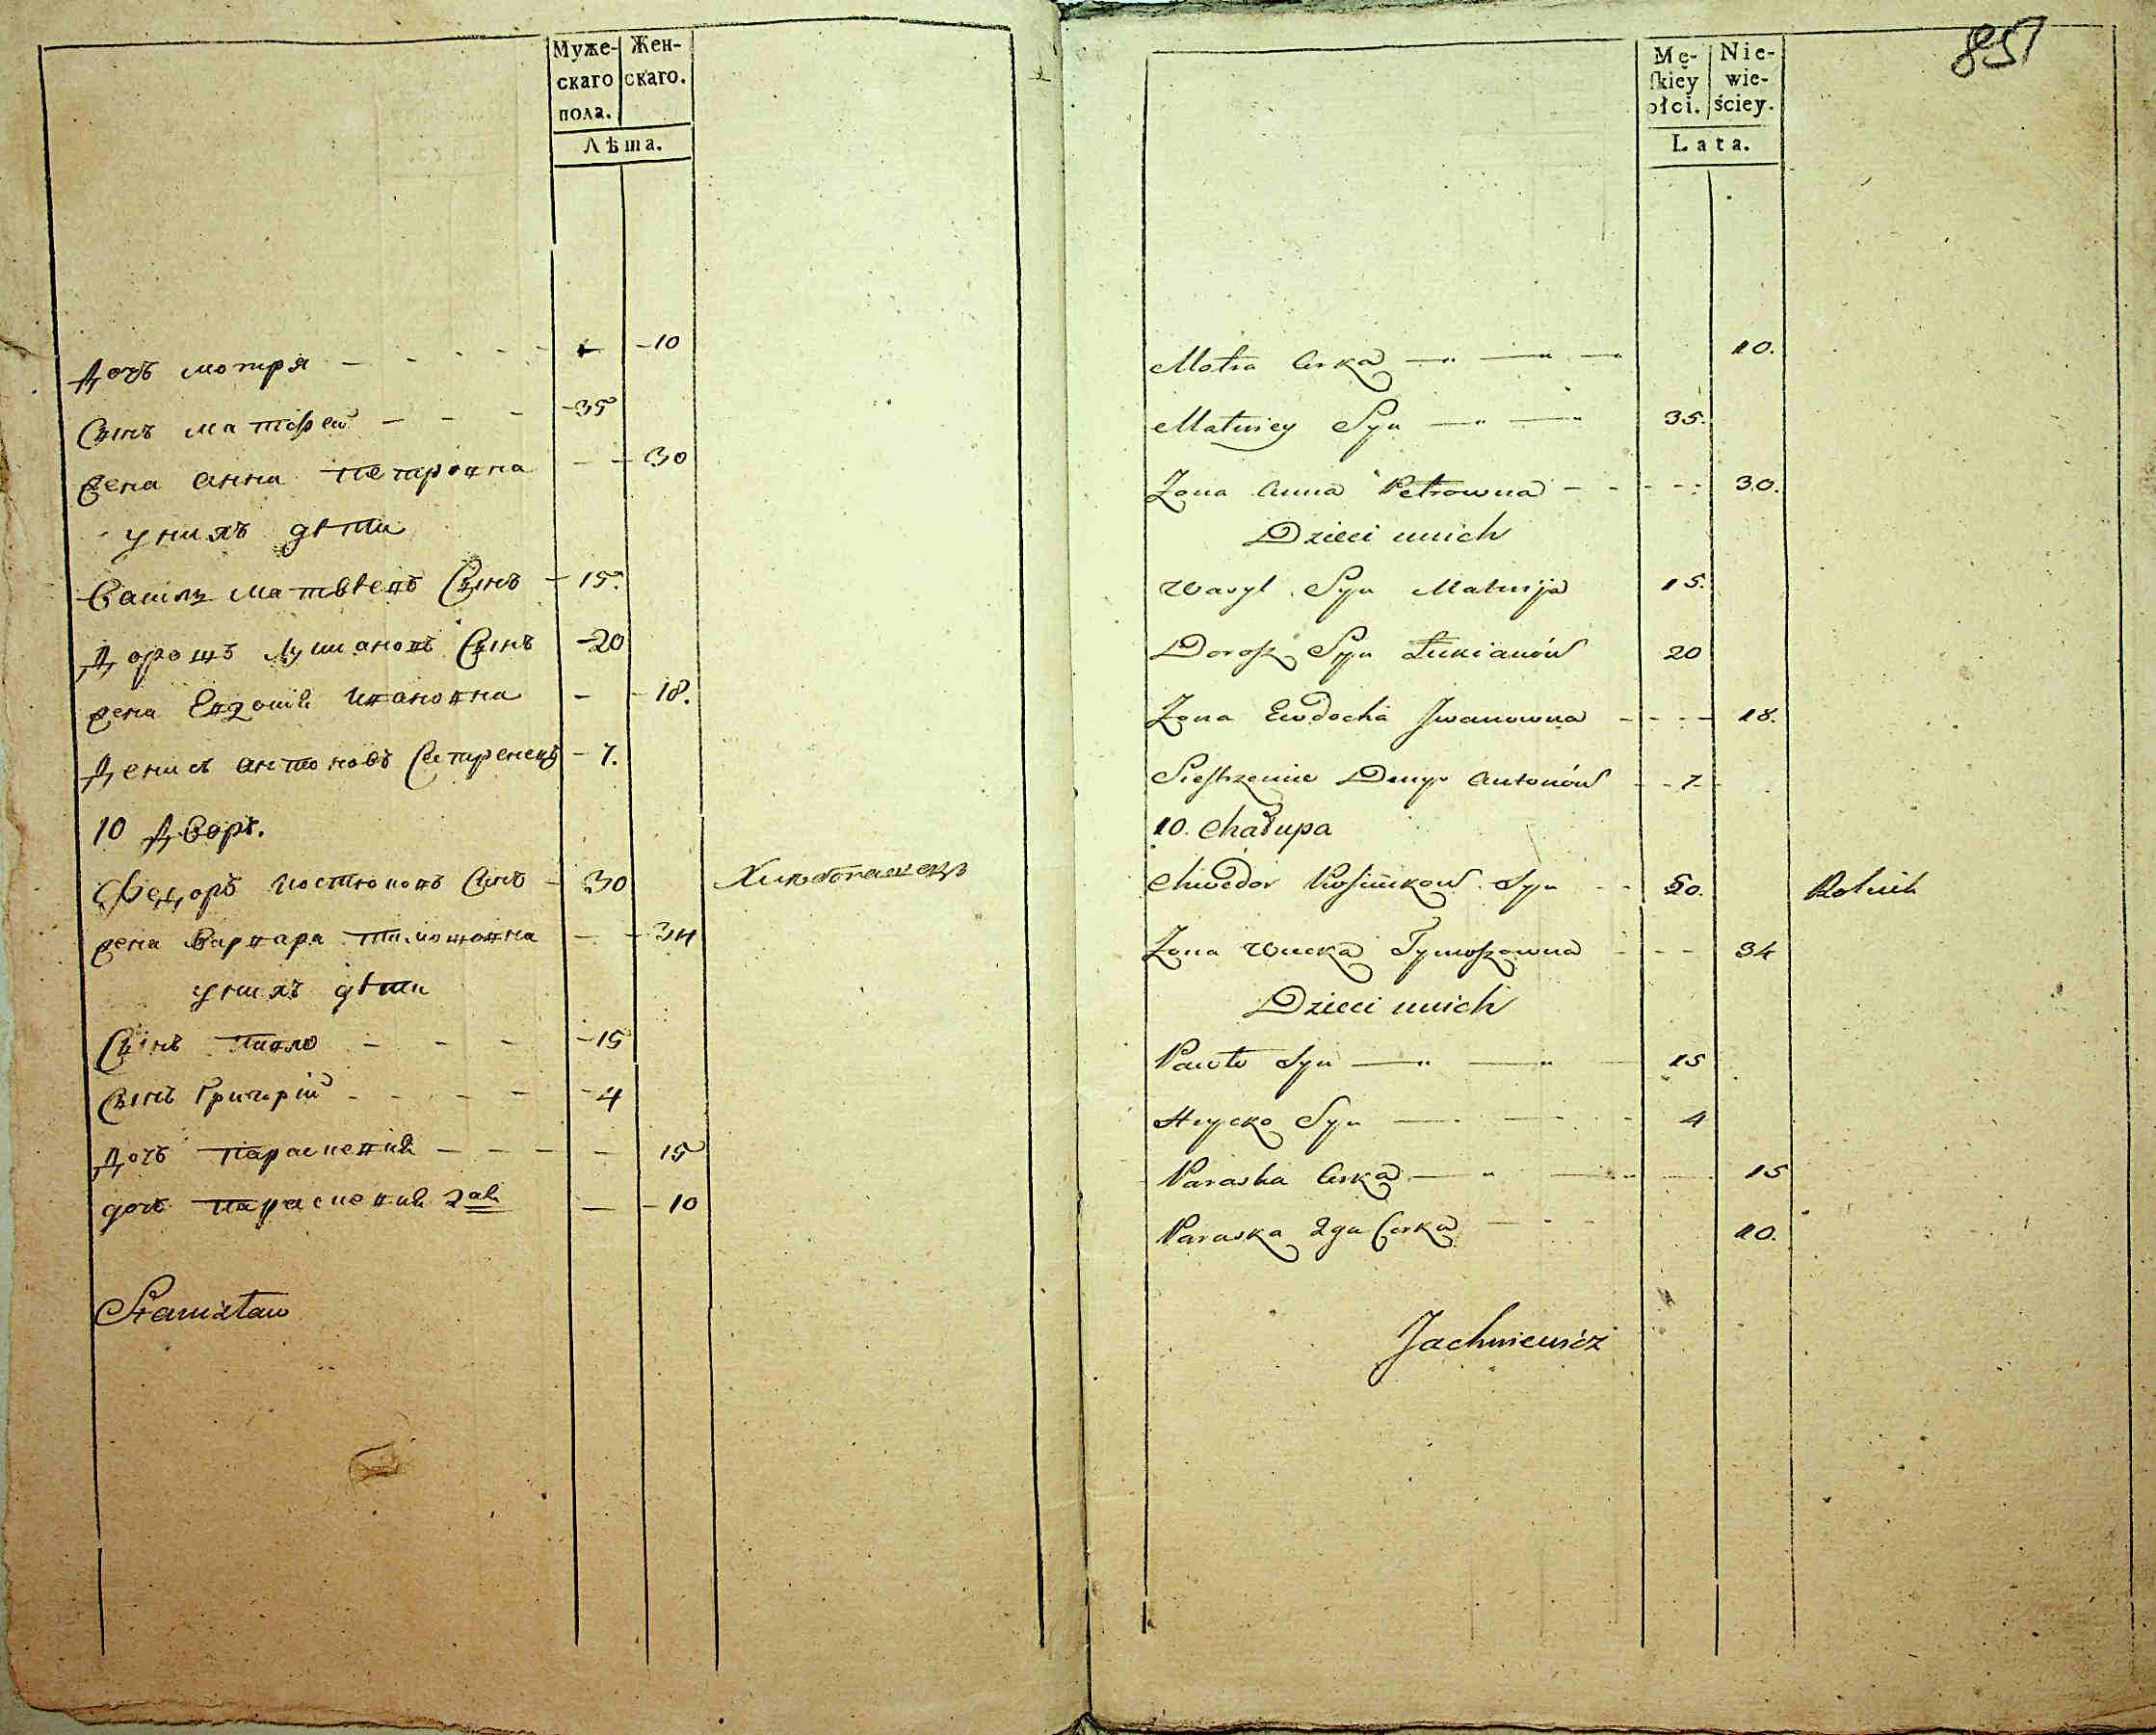 Муже-
скаго
пола.
Жен-
скаго.
Лѣта.
Дочъ мотря - - - - - -10
Сынъ матфей - - - -35
жена анна петровна - - 30
у нихъ дѣти
Василь матвеевъ Сынъ - 15.
Дорошъ Лукиановъ Сынъ -20
жена Евдокия Ивановна - - 18.
Денисъ антоновъ Сестренецъ - 7.
10 Дворъ.
Федоръ Костюковъ Сынъ - 30
жена Варвара тимошовна - - 34
у нихъ дѣти
Сынъ Павло - - - -15
Сынъ Григорій - - - - -4
Дочъ Параскевия - - - - 15
дочъ параскевия 2ая - - 10
Stanisław
851
Mę-
ſkiey
płci.
Nie-
wie-
ściey.
Lata.
Motra Corka 10.
Matwiey Syn 35.
Zona Anna Petrowna - - - - 30.
Dzieci unich
Wasyl Syn Matwija 15.
Dorosz Syn Łukianów 20
Zona Ewdocha Iwanowna - - - - 18.
Siestrzeniec Denys Antonów - - 7 -
10. Chałupa
Chwedor Syn 30. Rolnik
Zona Tymoszowna - - - 34
Dzieci unich
Pawło Syn 15
Hrycko Syn 4
Paraska Corka 15
Paraska 2ga Corka 10.
Jachniewicz